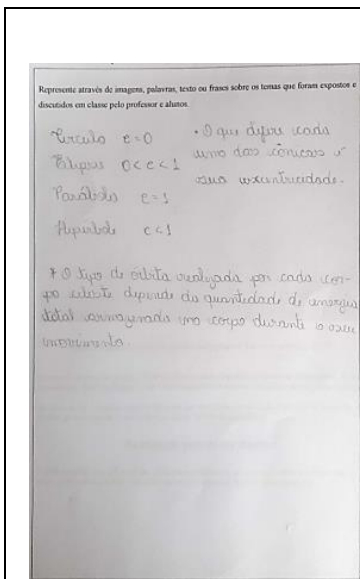 Represente através de imagens, palavras, texto ou frases sobre os temas que foram expostos e
discutidos em classe pelo professor e alunos.
Círculo e=0
Elipse 0<e<1
Parábola e=1
Hipérbole e<1
• O que difere cada
uma das cônicas é
sua excentricidade.
* O tipo de órbita realizada por cada cor-
po celeste depende da quantidade de energia
total armazenada no corpo durante o seu
movimento.